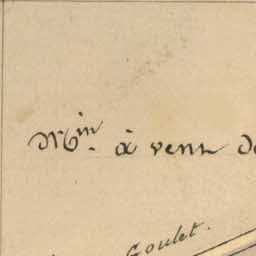 Min. à vent de
Goulet.